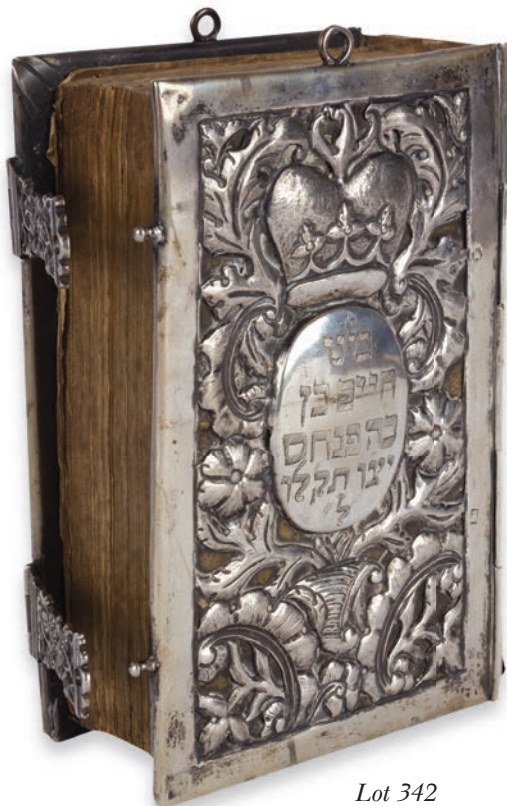 חיים בן
כה פנחס
יצו תקלו
ל
Lot 342